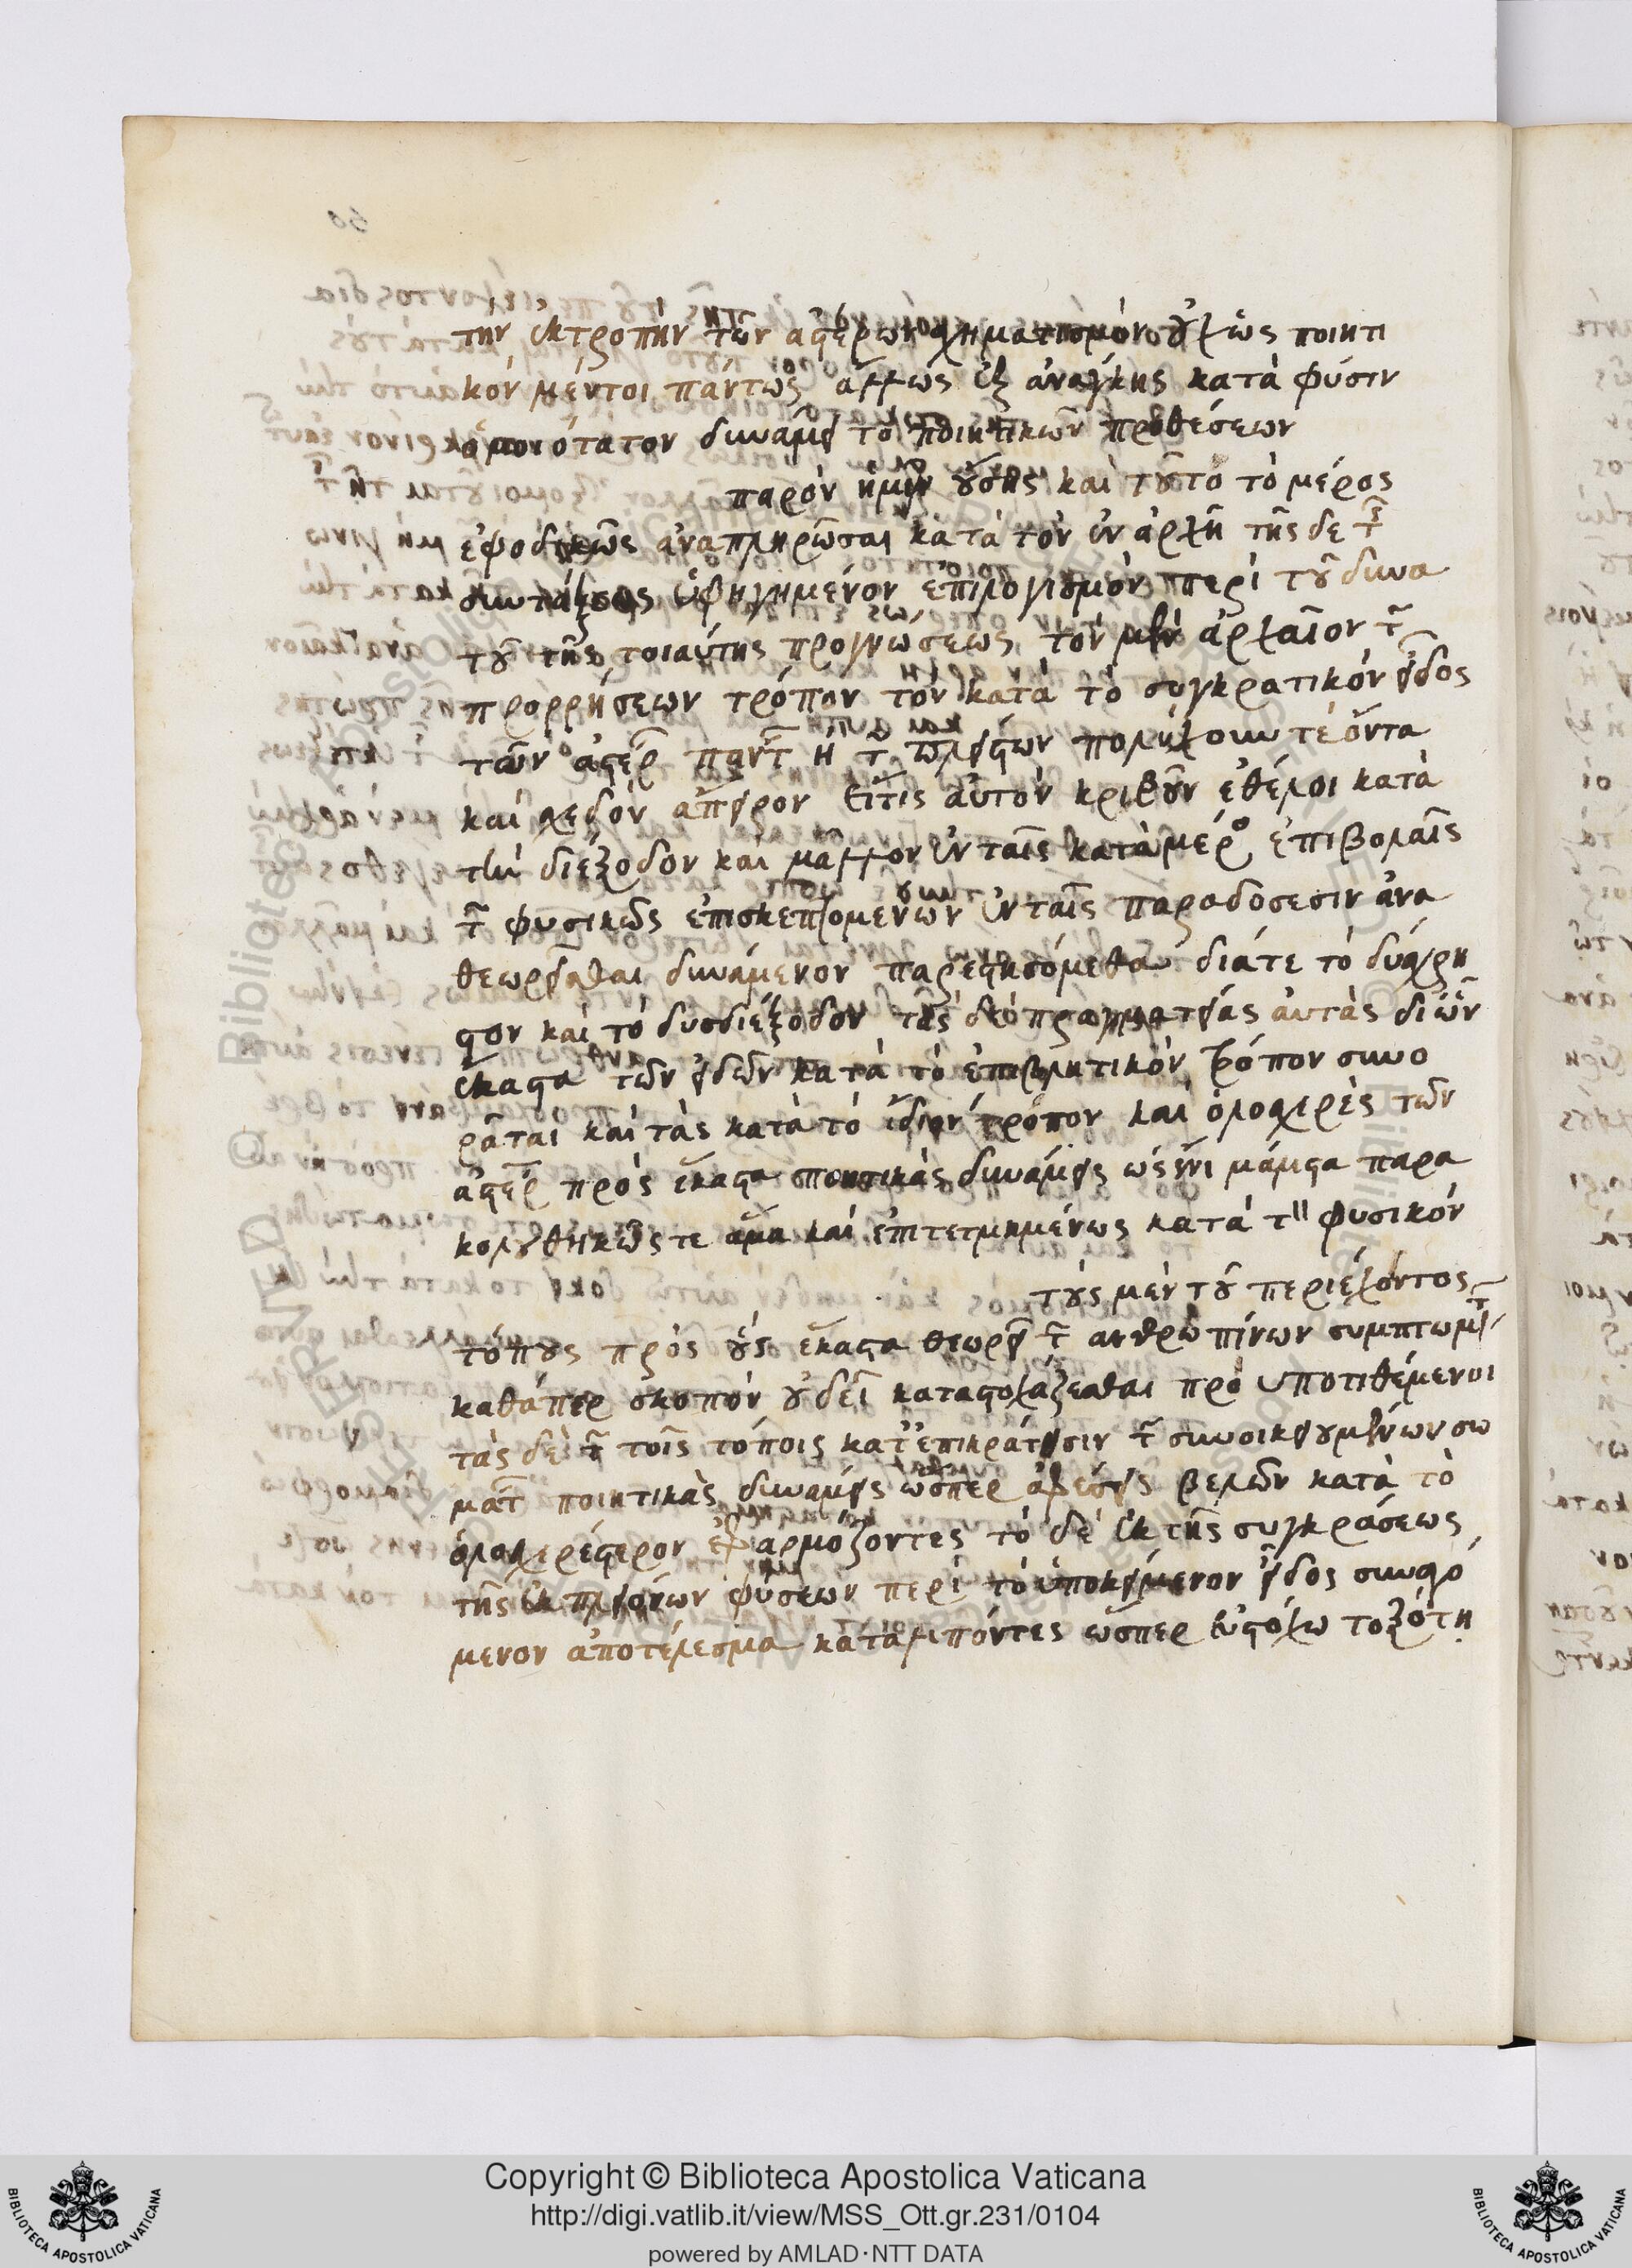 την ἐκτροπὴν τῶν ἀστέρων σχηματισμὸν οὐχ ὡς ποιητι
κὸν μέντοι πάντως ἀλλ' ὡς ἐξ ἀνάγκης κατὰ φύσιν
ὁμοιότατον δυνάμει τῶ ποιητικῶν προθέσεων
παρὸν ἡμῖν οὔσης καὶ τοῦτο τὸ μέρος
ἐφοδικῶς ἀναπληρῶσαι κατὰ τὸν ἐν ἀρχῆ τῆς δε τ
συντάξεως ὑφηγημένον ἐπιλογισμὸν περὶ τοῦ δυνα
τοῦ τῆς τοιαύτης προγνώσεως τὸν μὲν ἀρχαῖον τ
προρρήσεων τρόπον τὸν κατὰ τὸ συγκρατικὸν εἶδος
τῶν ἀστέρ παντ ἢ τ πλείστων πολύχουν τε ὄντα
καὶ σχεδὸν ἄπειρον εἴ τις αὐτὸν κριβοῦν ἐθέλοι κατὰ
τὴν διέξοδον καὶ μᾶλλον ἐν ταῖς κατὰ μέρο ἐπιβολαῖς
τ φυσικῶς ἐπισκεπτομένων ἐν ταῖς παραδόσεσιν ἀνα
θεωρεῖσθαι δυνάμενον παρεστησόμεθα διά τε τὸ δύσχρη
στον καὶ τὸ δυσδιέξοδον τὰς δὲ πραγματείας αὐτὰς δι' ὧν
ἕκαστα τῶν εἰδῶν κατὰ τὸ ἐπιβλητικὸν τρόπον συνο
ρᾶται καὶ τὰς κατὰ τὸ ἴδιον τρόπον καὶ ὁλοσχερὲς τῶν
ἀστέρ πρὸς ἕκαστα ποιητικὰς δυνάμεις ὡς ἔνι μάλιστα παρα
κολουθηκῶς τε ἅμα καὶ ἐπιτετμημένως κατὰ τ φυσικὸν
τοὺς μὲν τοῦ περιέχοντος
τόπους πρὸς οὓς ἕκαστα θεωρεῖ τ ἀνθρωπίνων συμπτωμ
καθάπερ σκοπὸν οὐ δεῖ καταστοχάζεσθαι προ υποτιθέμενοι
τὰς δὲ τ τοῖς τόποις κατ' ἐπικράτησιν τ συνοικειουμένων σω
ματ ποιητικὰς δυνάμεις ὥσπερ ἀφέσεις βελῶν κατὰ τὸ
ὁλοσχερέστερον ἐφαρμόζοντες τὸ δὲ ἐκ τῆς συγκράσεως
τῆς ἐκ πλειόνων φύσεων περὶ τὸ ὑποκείμενον εἶδος συναγό
μενον ἀποτέλεσμα καταλιπόντες ὥσπερ εὐστόχω τοξότη
Copyright © Biblioteca Apostolica Vaticana
http://digi.vatlib.it/view/MSS_Ott.gr.231/0104
powered by AMLAD·NTT DATA
BIBLIOTECA APOSTOLICA VATICANA
BIBLIOTECA APOSTOLICA VATICANA